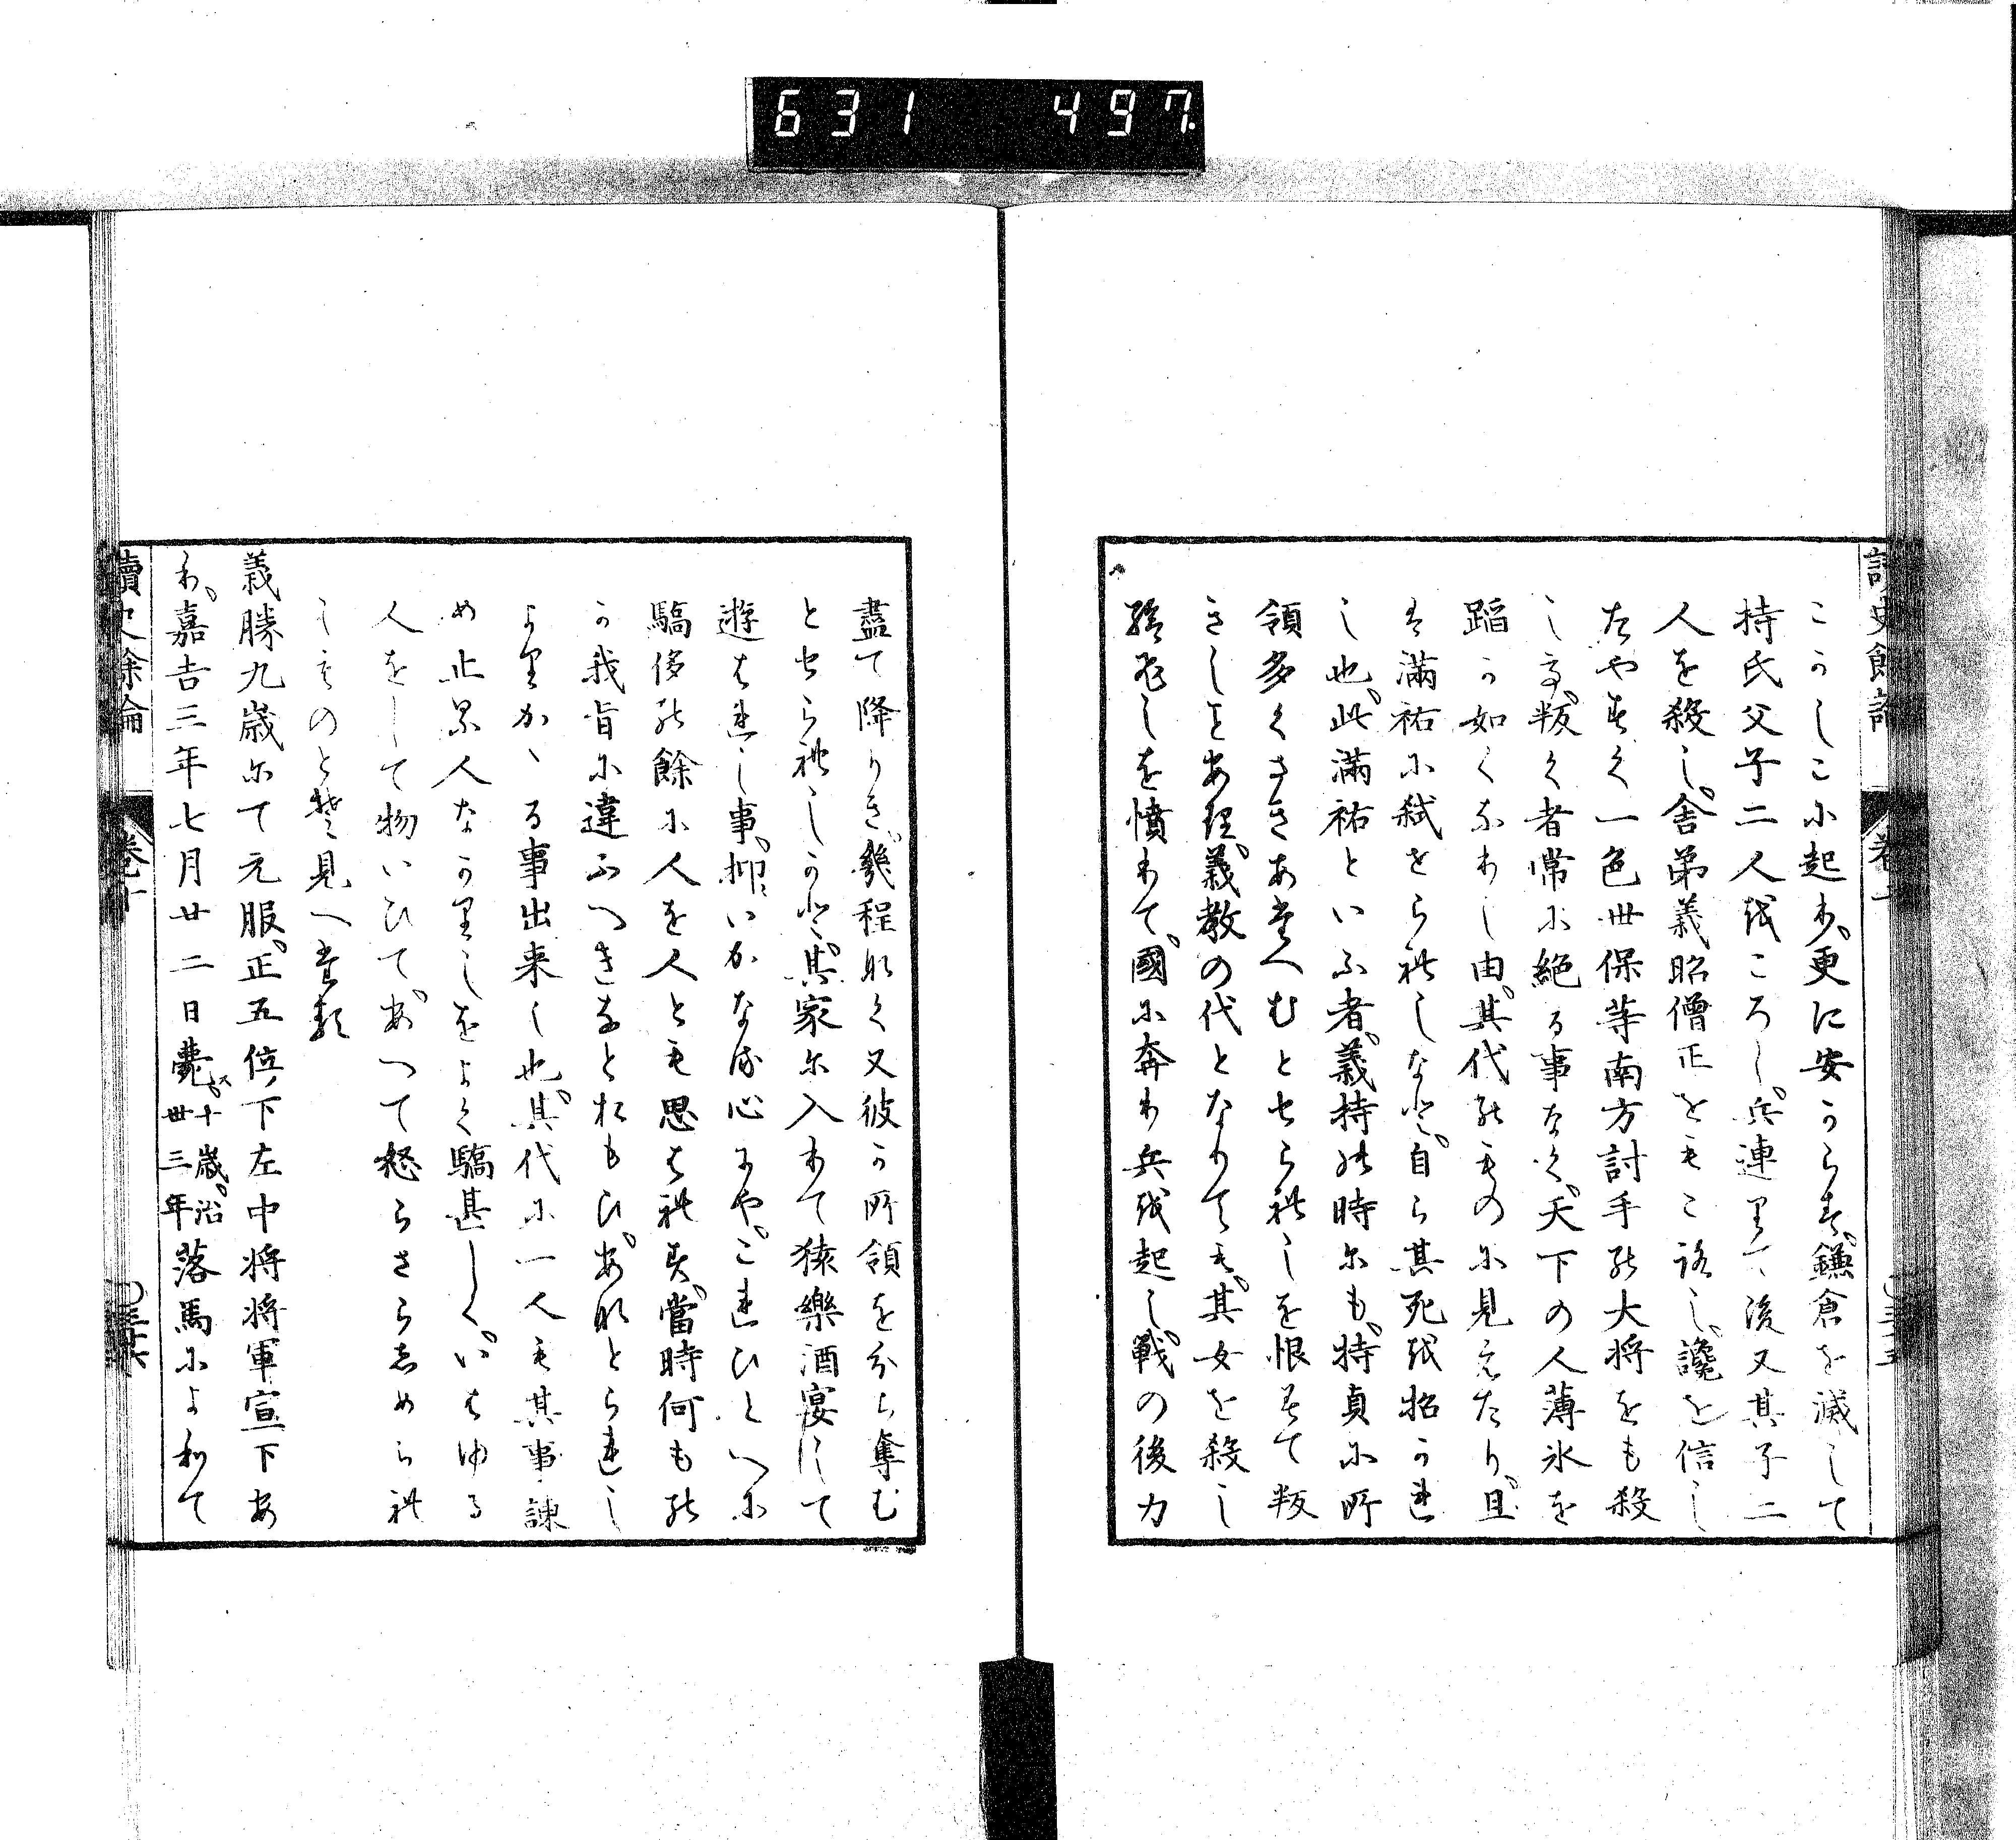 631 497
讀史餘論
こゝかしこに起り、更に安からす、鎌倉を滅して
持氏父子二人をころし、兵連りて、後又其子二
人を殺し、舎弟義昭僧正をもころし、讒を信し
たやすく一色世保等南方討手の大将をも殺
し、叛く者常に絶る事なく、天下の人薄氷を
蹈か如くなりし由、其代のものに見えたり、且
は満祐に弑せられしなと、自ら其死を招かれ
し也、此満祐といふ者、義持の時にも、持貞に所
領多くさきあたへむとせられしを恨みて叛
きしとあり、義教の代となりても、其女を殺し
しを憤りて、國に奔り兵を起し、戦の後力
盡て降りき、幾程なく又彼か所領を分ち奪む
とせられしかと、其家に入りて猿樂酒宴にして
遊はれし事、抑いかなる心にや、これひとへに
驕侈の餘に人を人とも思はれす、當時何もの
か我旨に違ふへきなとおもひ、あなとられし
よりかゝる事出来し也、其代に一人も其事諫
め止る人なかりしをよく驕甚しく、いはゆる
人をして物いひて、あへて怒らさらしめられ
しものとそ見へたる
義勝九歳にて元服、正五位ノ下左中将将軍宣下あ
り、嘉吉三年七月廿二日薨ス十歳、治世三年落馬によりて
讀史餘論 巻十